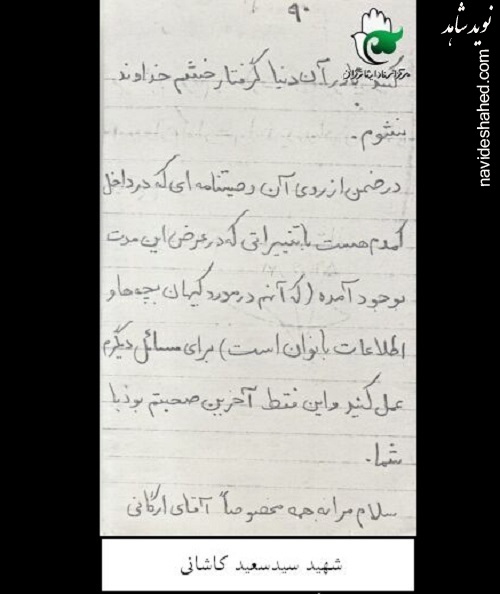 ۹۰
نوید شاهد
navideshahed.com
مرکز اسناد ایثارگران
در آن دنیا گرفتار خشم خداوند
نشوم.
در ضمن از روی آن وصیتنامه ای که در داخل
کمدم هست با تغییراتی که در عرض این مدت
بوجود آمده (که آنهم در مورد کیهان بچه ها و
اطلاعات بانوان است) برای مسائل دیگرم
عمل کنید و این فقط آخرین صحبتم بود با
شما.
سلام مرا به همه مخصوصاً آقای
شهید سیدسعید کاشانی